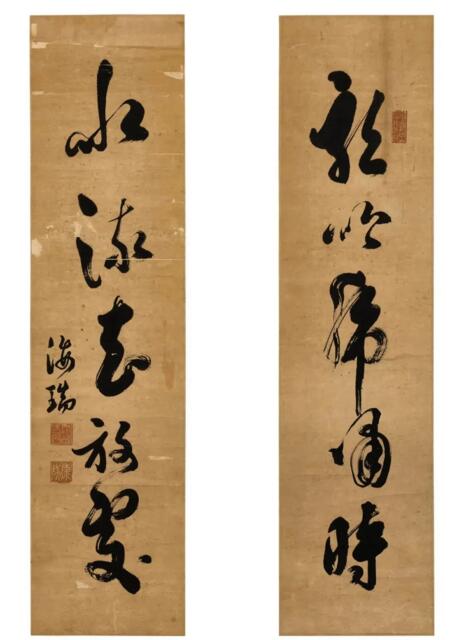 龍吟虎嘯時
水流花放處
海瑞